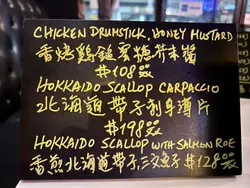 CHICKEN DRUMSTICK, HONEY MUSTARD
香烤鷄鎚蜜糖芥末醬
#108
HOKKAIDO SCALLOP CARPACCIO
北海道帶子刺身薄片
#198
HOKKAIDO SCALLOP WITH SALMON ROE
香煎北海道帶子三文魚子 #128